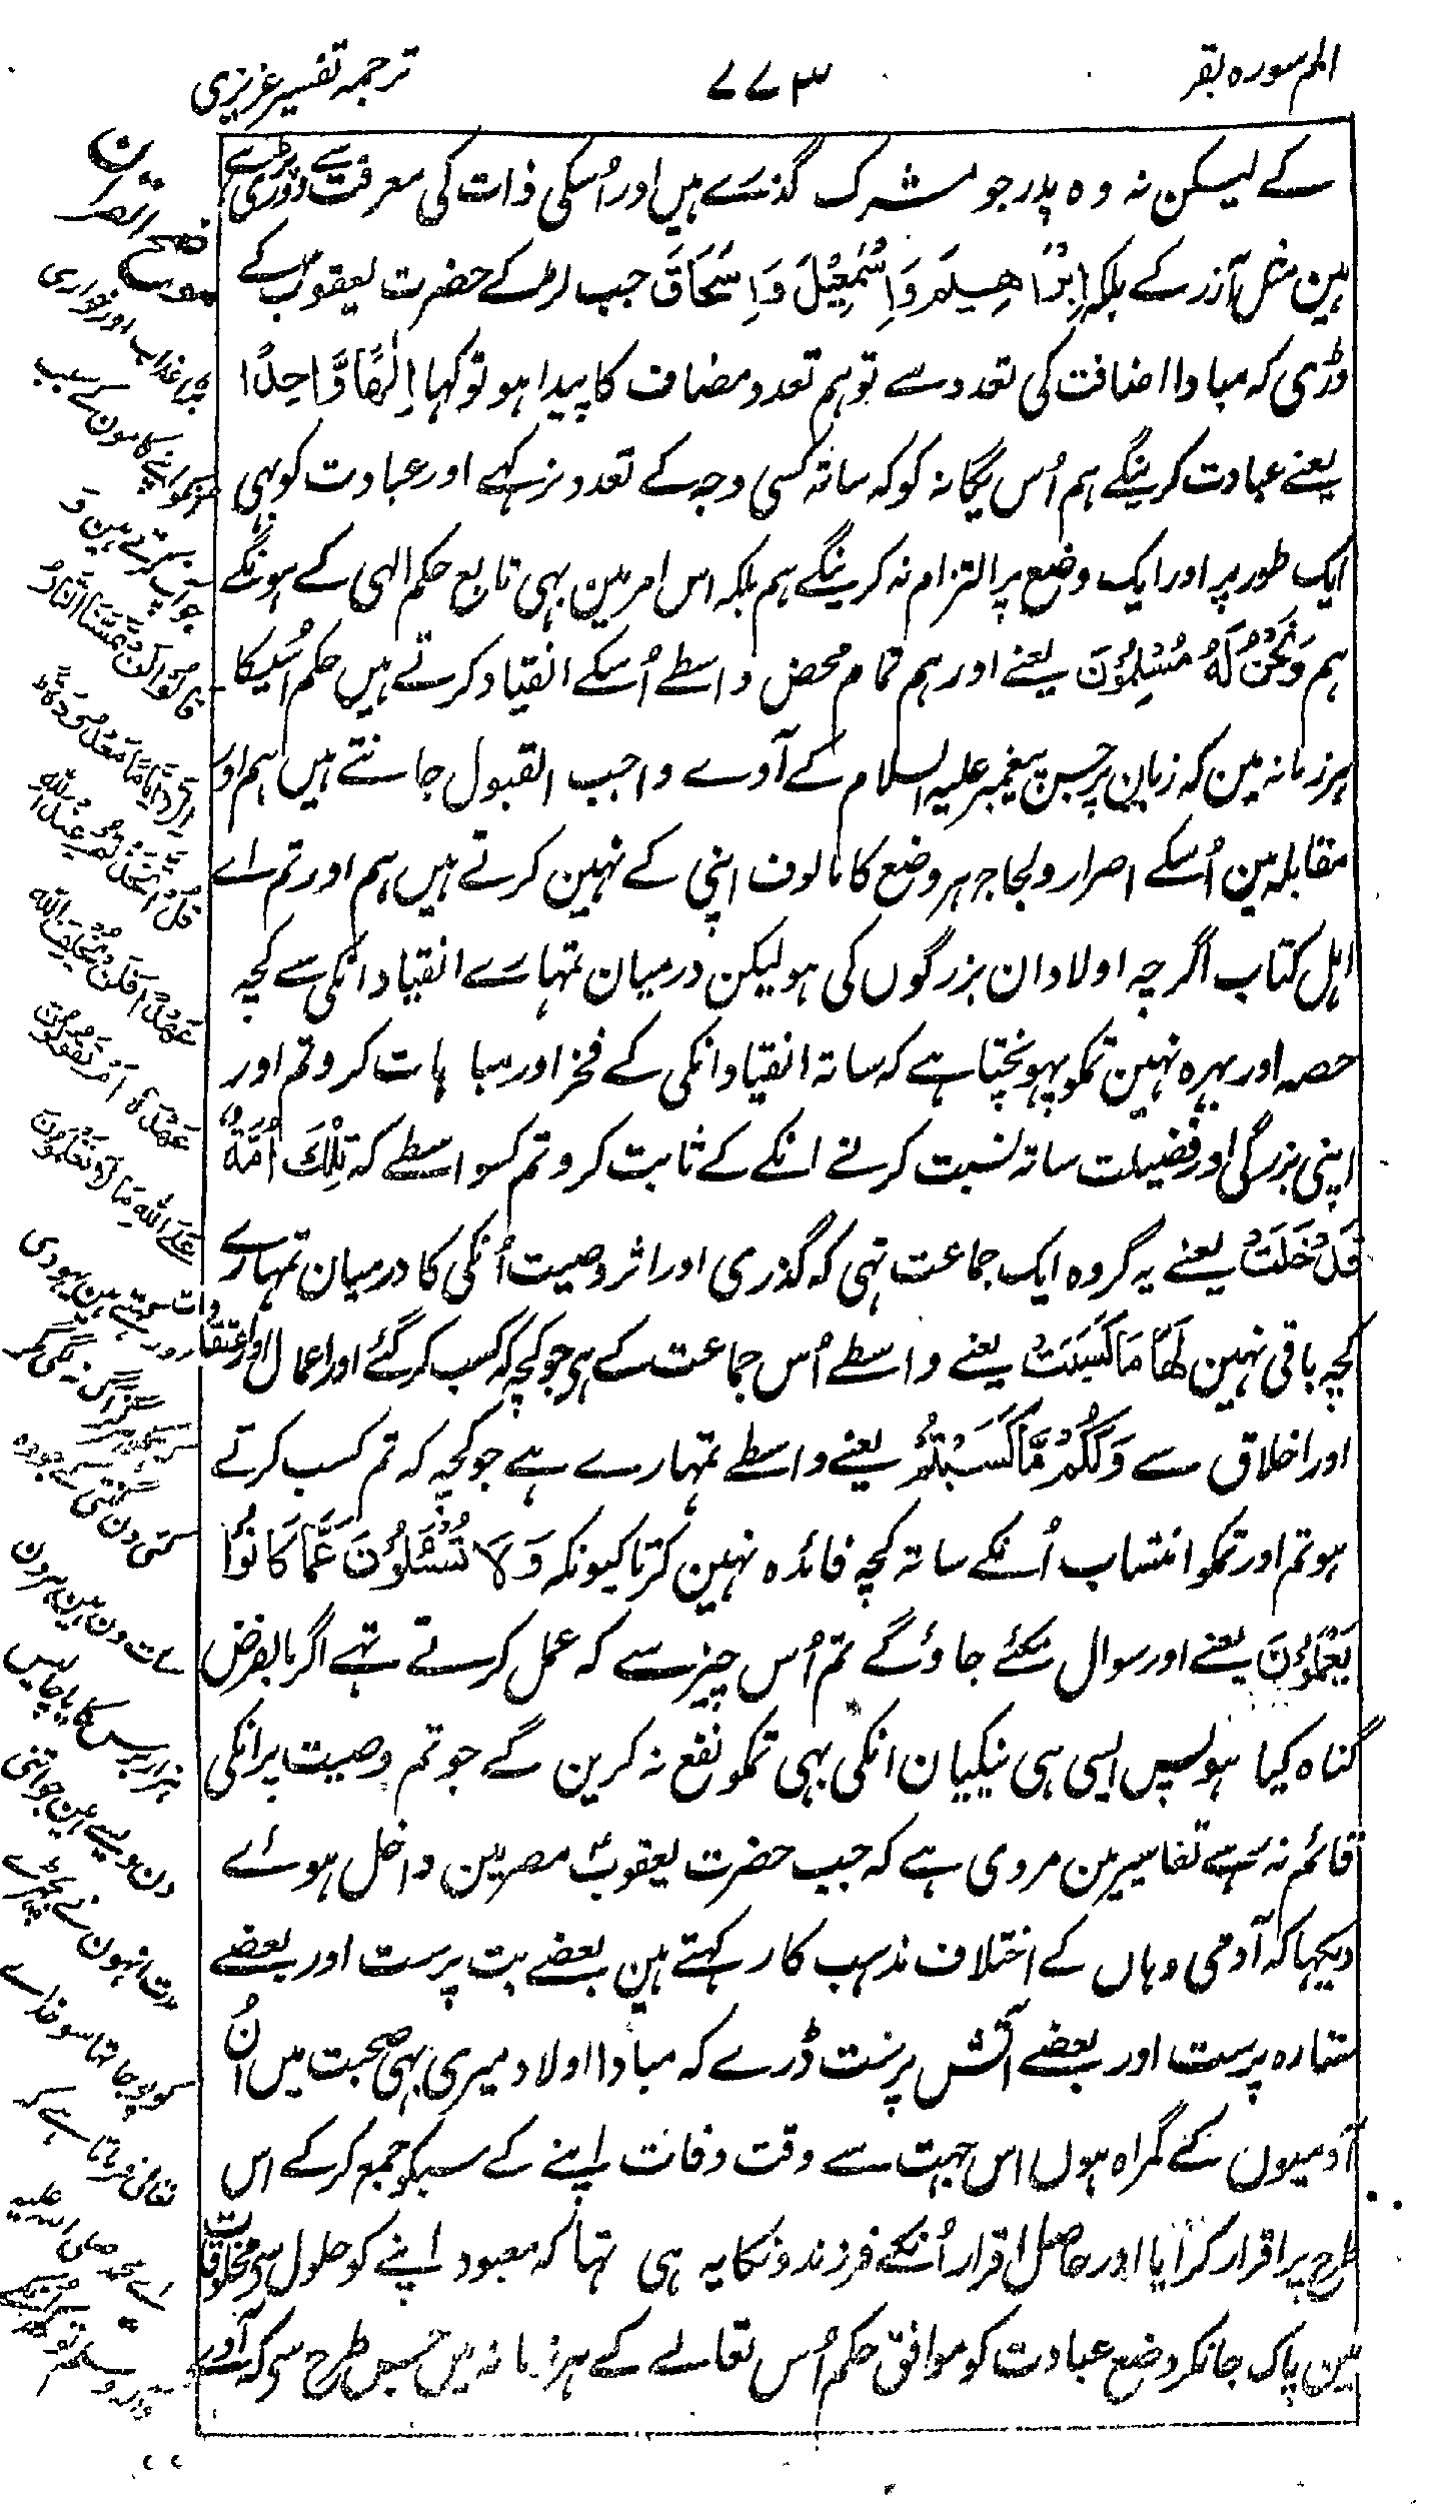 الم سوره بقر
۷۷۳
ترجمہ تفسیر عزیزی
کے لیکن نہ وہ پدر جو مشرک گذرے ہیں اور اُسکی ذات کی معرفت سے دوری پڑے
ہین مثل آزر کے بلکہ اِبْرَاهِيمَ وَاِسْمٰعِيْلَ وَاِسْحَاقَ جب لڑکے حضرت یعقوبؑ کے
ڈری کہ مبادا اضافت کی تعدد سے توہم تعدد مضاف کا پیدا ہو تو کہا اِلٰهًا وَّاحِدًا
یعنے عبادت کرینگے ہم اُس یگانہ کو کہ ساتہ کسی وجہ کے تعدد نرکہے اور عبادت کو بہی
ایک طور پر اور ایک وضع پر التزام نہ کرینگے ہم بلکہ اس امر مین بہی تابع حکم الہی کے ہونگے
ہم وَنَحْنُ لَهٗ مُسْلِمُوْنَ یعنے اور ہم تمام محض واسطے اُسکے انقیاد کرتے ہیں حکم اُسیکا
ہر زمانہ مین کہ زبان پر جس پیغمبر علیہ السلام کے آوے واجب القبول جانتے ہیں ہم اور
مقابلہ مین اُسکے اصرار و لجاجہر وضع کا مالوف اپنی کے نہین کرتے ہیں ہم اور تم اے
اہل کتاب اگرچہ اولاد ان بزرگوں کی ہو لیکن درمیان تمہارے انقیاد انکی سے کچہ
حصہ اور بہرہ نہین تمکو پہونچتا ہے کہ ساتہ انقیاد انکی کے فخر اور مباہات کرو تم اور
اپنی بزرگی اور فضیلت ساتہ نسبت کرنے انکے کے ثابت کرو تم کسواسطے کہ تِلْكَ اُمَّةٌ
قَدْ خَلَتْ یعنے یہ گروہ ایک جماعت تہی کہ گذری اور اثر وصیت اُنکی کا درمیان تمہارے
کچہ باقی نہین لَهَا مَا كَسَبَتْ یعنے واسطے اُس جماعت کے ہی جو کچہ کہ کسب کرگئے اور اعمال اور اعتقاد
اور اخلاق سے وَلَكُمْ مَّا كَسَبْتُمْ یعنے واسطے تمہارے ہے جو کچہ کہ تم کسب کرتے
ہو تم اور تمکو انتساب اُنکے ساتہ کچہ فائدہ نہین کرتا کیونکہ وَلَا تُسْئَلُوْنَ عَمَّا كَانُوْا
يَعْمَلُوْنَ یعنے اور سوال نکئے جاؤگے تم اُس چیز سے کہ عمل کرتے تہے اگر بالفرض
گناہ کیا ہو پس ایسی ہی نیکیان انکی بہی تمکو نفع نہ کرین گے جو تم وصیت پر انکی
قائم نرہے تفاسیر مین مروی ہے کہ جب حضرت یعقوبؑ مصر مین داخل ہوئے
دیکہا کہ آدمی وہاں کے اختلاف مذہب کا رکہتے ہین بعضے بت پرست اور بعضے
ستارہ پرست اور بعضے آتش پرست ڈرے کہ مبادا اولاد میری بہی صحبت میں اُن
آدمیوں کے گمراہ ہوں اس جہت سے وقت وفات اپنے کے سبکو جمع کرکے اس
طرح پر اقرار کرایا اور حاصل اقرار اُنکے فرزندونکا یہ ہی تہا کہ معبود اپنے کو حلول سی مخلوقات
مین پاک جانکر وضع عبادت کو موافق حکم اُس تعالے کے ہر زمانہ میں جس طرح سی کہ آوے
موضح القرآن
عذاب اور خواری
اپنے کامون کے سبب
کرتے ہین وَ
قَالُوْا لَنْ تَمَسَّنَا النَّارُ
اِلَّا اَيَّامًا مَّعْدُوْدَةً
قُلْ اَتَّخَذْتُمْ عِنْدَ اللّٰهِ
عَهْدًا فَلَنْ يُّخْلِفَ اللّٰهُ
عَهْدَهٗ اَمْ تَقُوْلُوْنَ
عَلَى اللّٰهِ مَا لَا تَعْلَمُوْنَ
کہتے ہین یہودی
ہرگز آگ نہ لگی گی مگر
گنتی کے جو وہ
دن ہین
ہزار برس کا یا چالیس
دن ہین جو اتنی
مدت انہون نے بچہڑے
کو پوجا تہا سو خدائے
تعالی فرماتا ہے کہ
اے محمد صلی اللہ علیہ
وآلہ وسلم تو کہہ